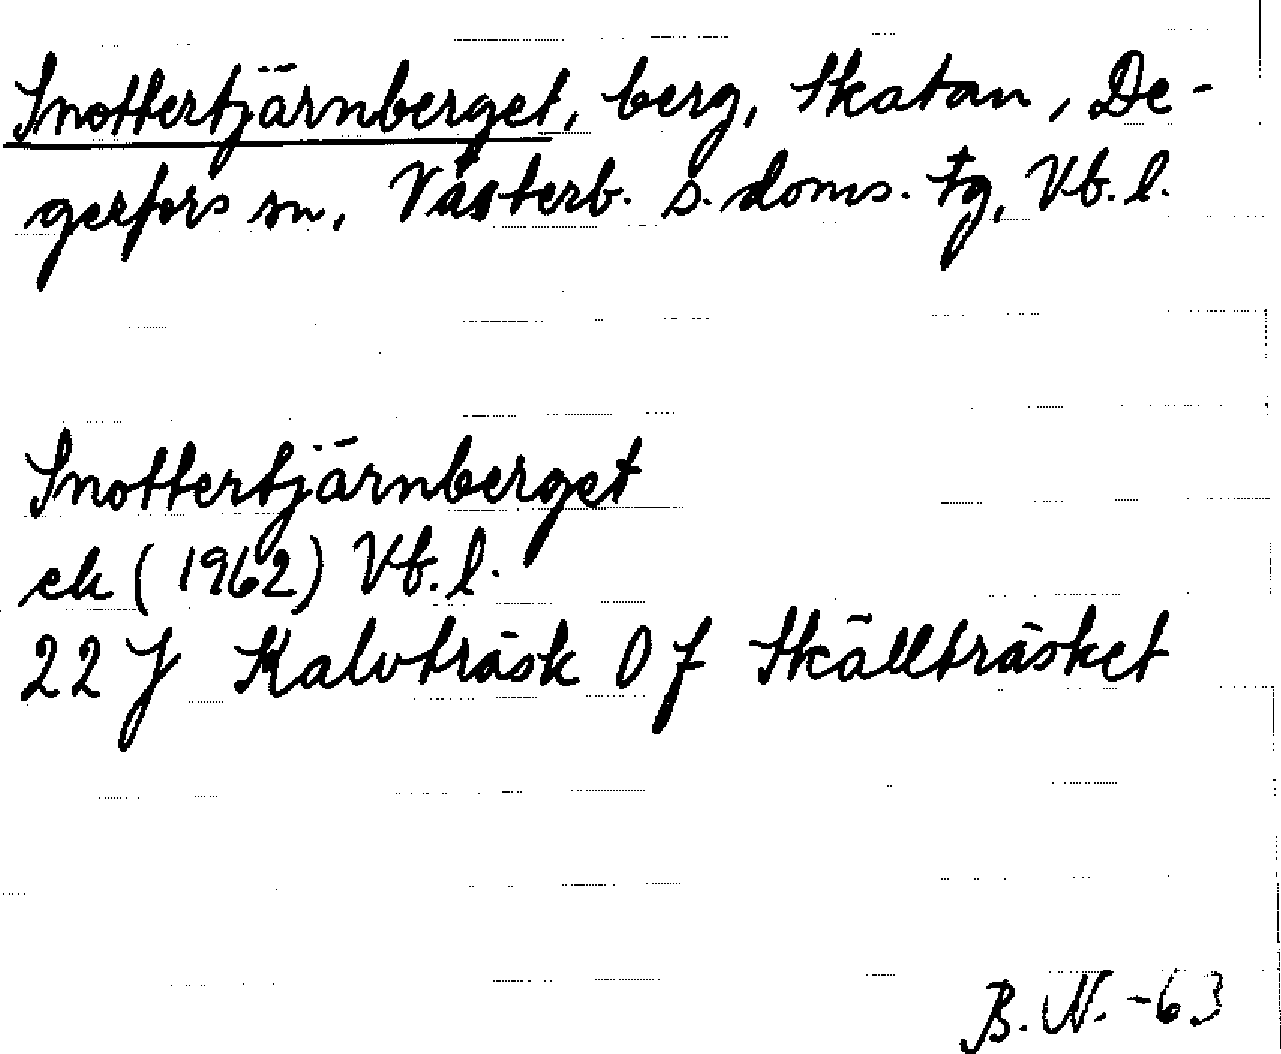 Snottertjärnberget, berg, Skatan, De-
gerfors sn, Västerb. s. doms. tg, Vb. l.
Snottertjärnberget
ek (1962) Vb. l.
22 J Kalvträsk 0 f Skällträsket
B. N. -63